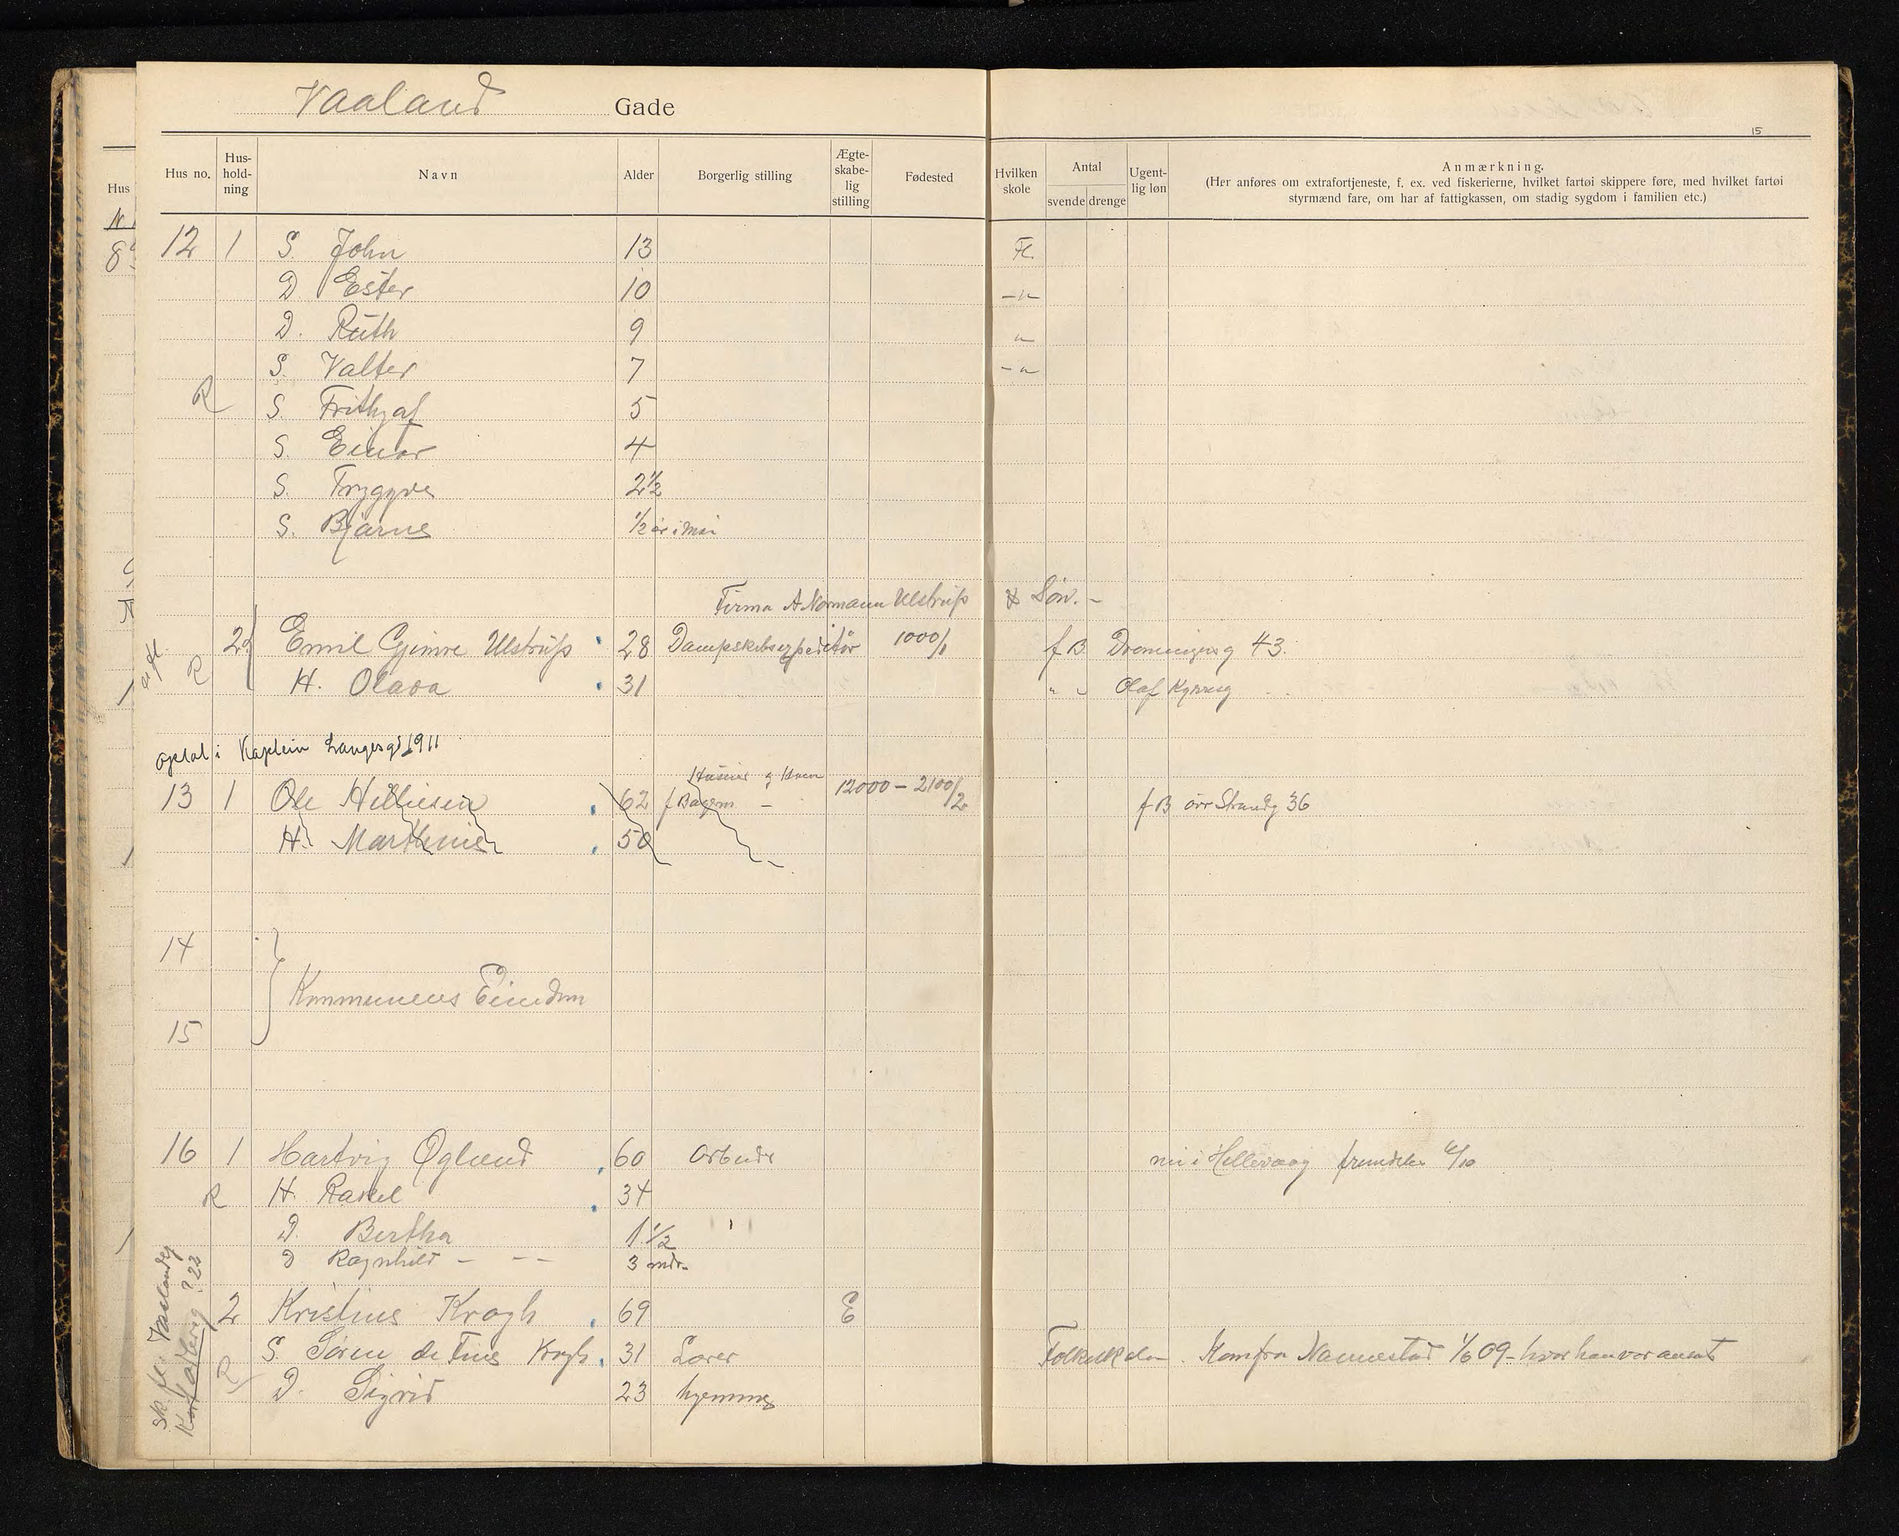 Vaaland Gade
15
Hus no. Hus-hold-ning Navn Alder Borgerlig stilling Ægte-skabe-lig stilling Fødested Hvilken skole Antal svende drenge Ugent-lig løn Anmærkning.
(Her anføres om extrafortjeneste, f. ex. ved fiskerierne, hvilket fartøi skippere føre, med hvilket fartøi
styrmænd fare, om har af fattigkassen, om stadig sygdom i familien etc.)
Hus
12 1 S. John 13 Fl.
D Ester 10 -"-
D. Ruth 9 "
S. Valter 7 -"
R S. Frithjof 5
S. Einar 4
S. Trygve 2 1/2
S. Bjarne 1/2 år i mai
Firma A Normann Ulstrup Søn. -
2 Emil Gjimre Ulstrup 28 Dampskibsexpeditør 1000/1 f B. Dronningensg 43.
R H. Olava 31 " " Olaf Kyrresg
optal i Kaptein Langesgt 1911
13 1 Ole Helliesen 62 f Bagerm - 12000 - 2100/2 f B øvr Strandg 36
H. Marthine 50
14
Kommunens Eiendom
15
16 1 Hartvig Øglænd 60 Arbeider nu i Hillevaag
R H. Rakel 34
D. Bertha 1 1/2
D Ragnhild - -- 3 mdr.
2 Kristine Krogh 69 E
S Søren de Fine Krogh 31 Lærer Folkeskolen. Kom fra Nannestad 1/6 09 - hvor han var ansat
R D. Sigrid 23 hjemme
Sk. fl. Vaalandsg